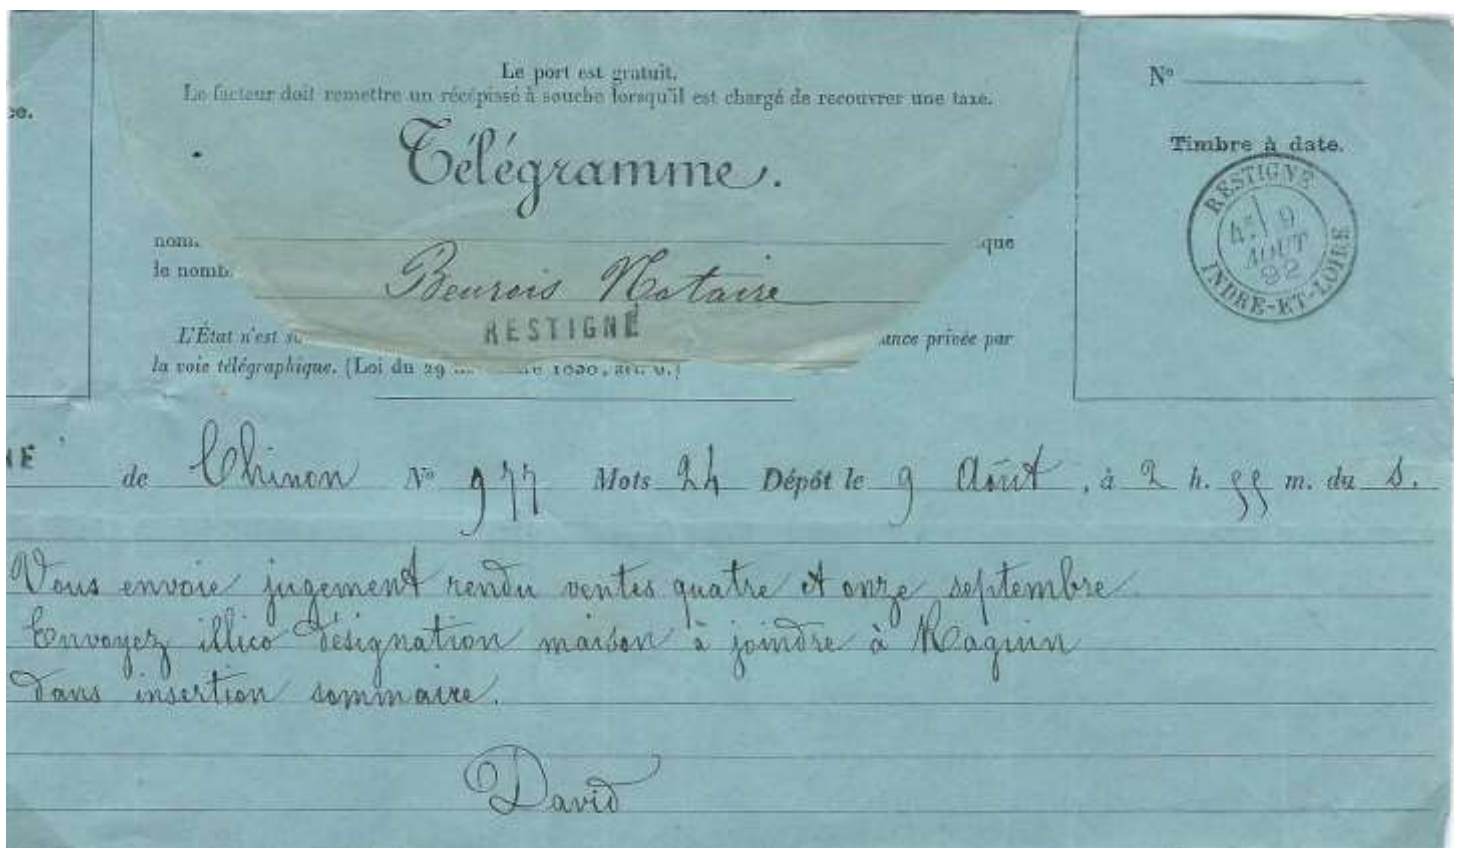 Le port est gratuit.
Le facteur doit remettre un récépissé à souche lorsqu'il est chargé de recouvrer une taxe.
ce.
Télégramme.
nom
que
le nomb
Beurois Notaire
RESTIGNÉ
L'État n'est s
ance privée par
la voie télégraphique. (Loi du 29
N°
Timbre à date.
RESTIGNÉ
9
AOUT
92
INDRE-ET-LOIRE
NÉ
de Chinon N° 977 Mots 24 Dépôt le 9 Août, à 2 h. 55 m. du S.
Vous envoie jugement rendu ventes quatre et onze septembre
Envoyez illico désignation maison à joindre à Maguin
dans insertion sommaire.
David